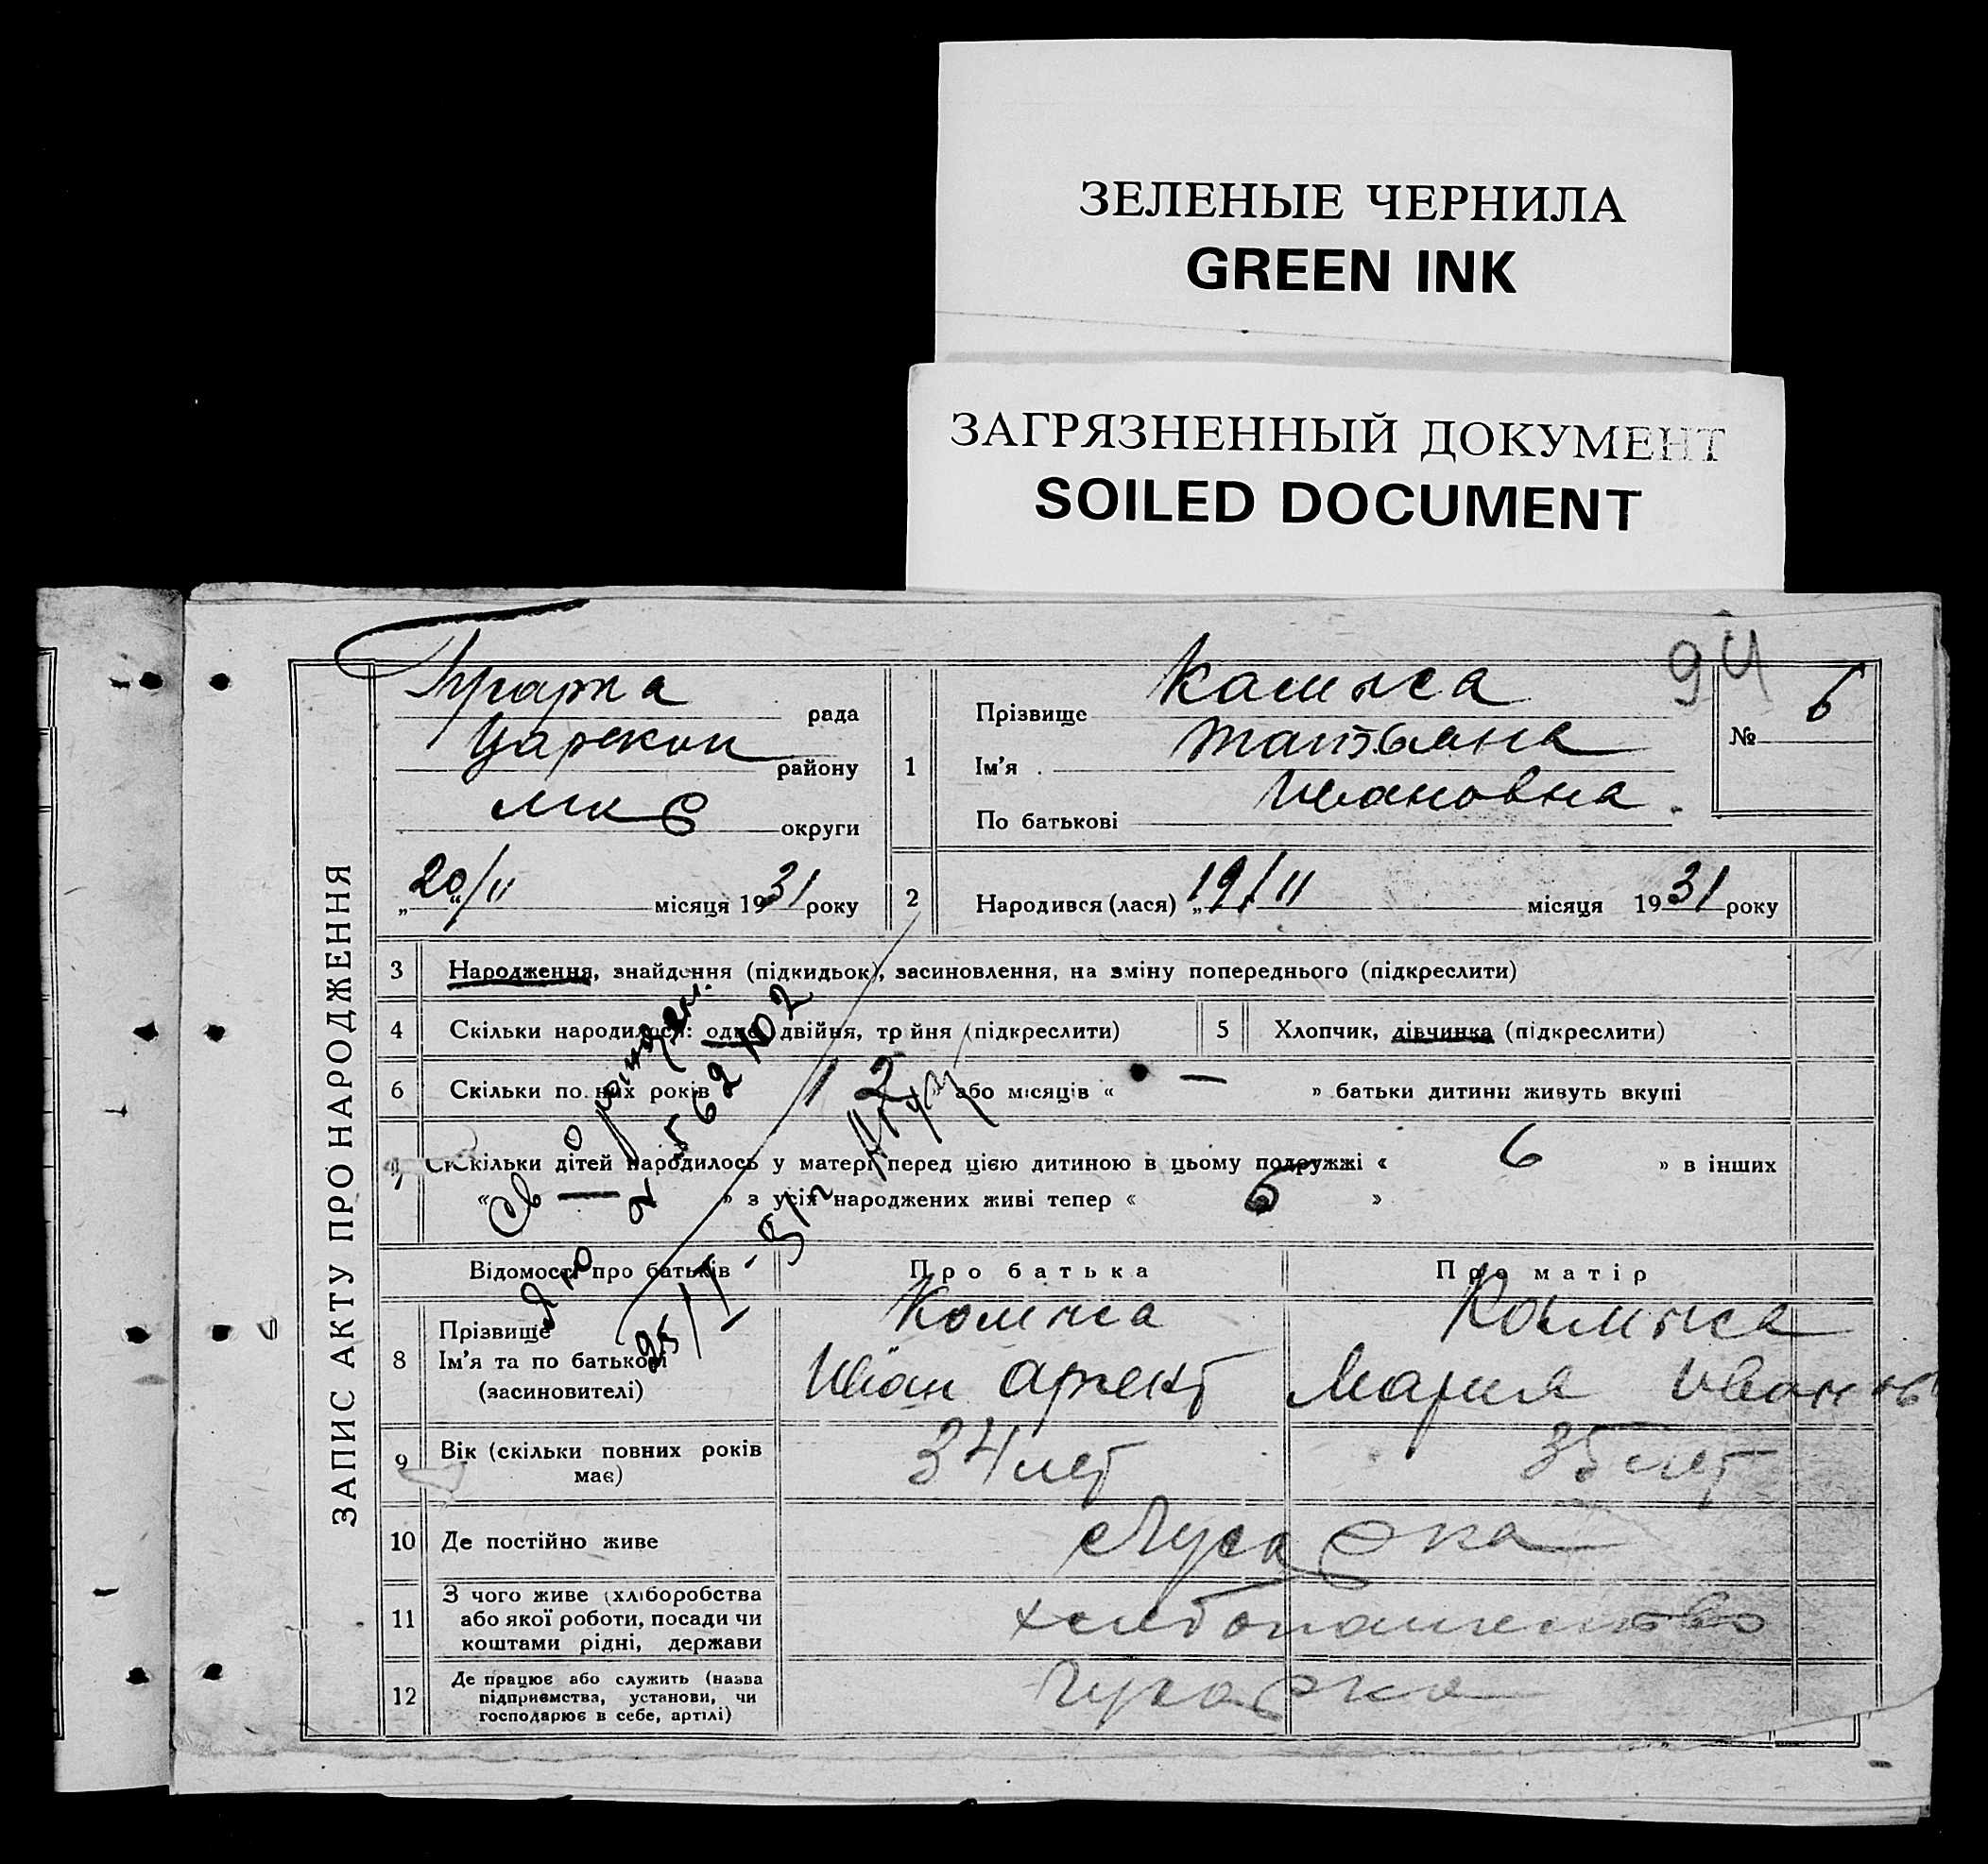 ЗЕЛЕНЫЕ ЧЕРНИЛА
GREEN INK
ЗАГРЯЗНЕННЫЙ ДОКУМЕНТ
SOILED DOCUMENT
94
ЗАПИС АКТУ ПРО НАРОДЖЕННЯ
рада
району
округи
„20/II місяця 1931 року
1
Прізвище
Ім'я Татьяна
По батькові Ивановна
№ 6
2 Народився (лася) „19/II місяця 1931 року
3 Народження, знайдення (підкидьок), засиновлення, на зміну попереднього (підкреслити)
4 Скільки народилося: одно, двійня, трійня (підкреслити)
5 Хлопчик, дівчинка (підкреслити)
6 Скільки повних років 12 » або місяців « — » батьки дитини живуть вкупі
7 Скільки дітей народилось у матері перед цією дитиною в цьому подружжі « 6 » в інших
« — » з усіх народжених живі тепер « 6 »
Відомості про батьків Про батька Про матір
8 Прізвище
Ім'я та по батькові Иван Мария Иванов
(засиновителі)
9 Вік (скільки повних років має) 34 лет 35 лет
10 Де постійно живе
11 З чого живе (хліборобства
або якої роботи, посади чи
коштами рідні, держави
хлебопашество
12 Де працює або служить (назва
підприємства, установи, чи
господарює в себе, артілі)